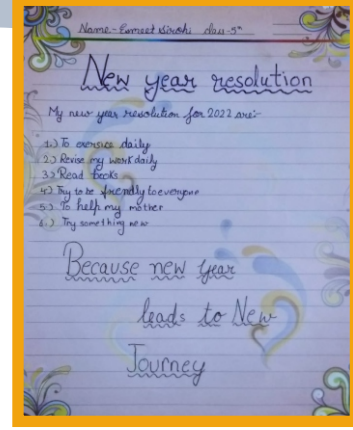 Name - Esmeet Sirohi class - 5th
New year resolution
My new year resolution for 2022 are:-
1.) To exersise daily
2.) Revise my work daily
3.) Read books
4.) Try to be friendly to everyone
5.) To help my mother
6.) Try something new
Because new year
leads to New
Journey